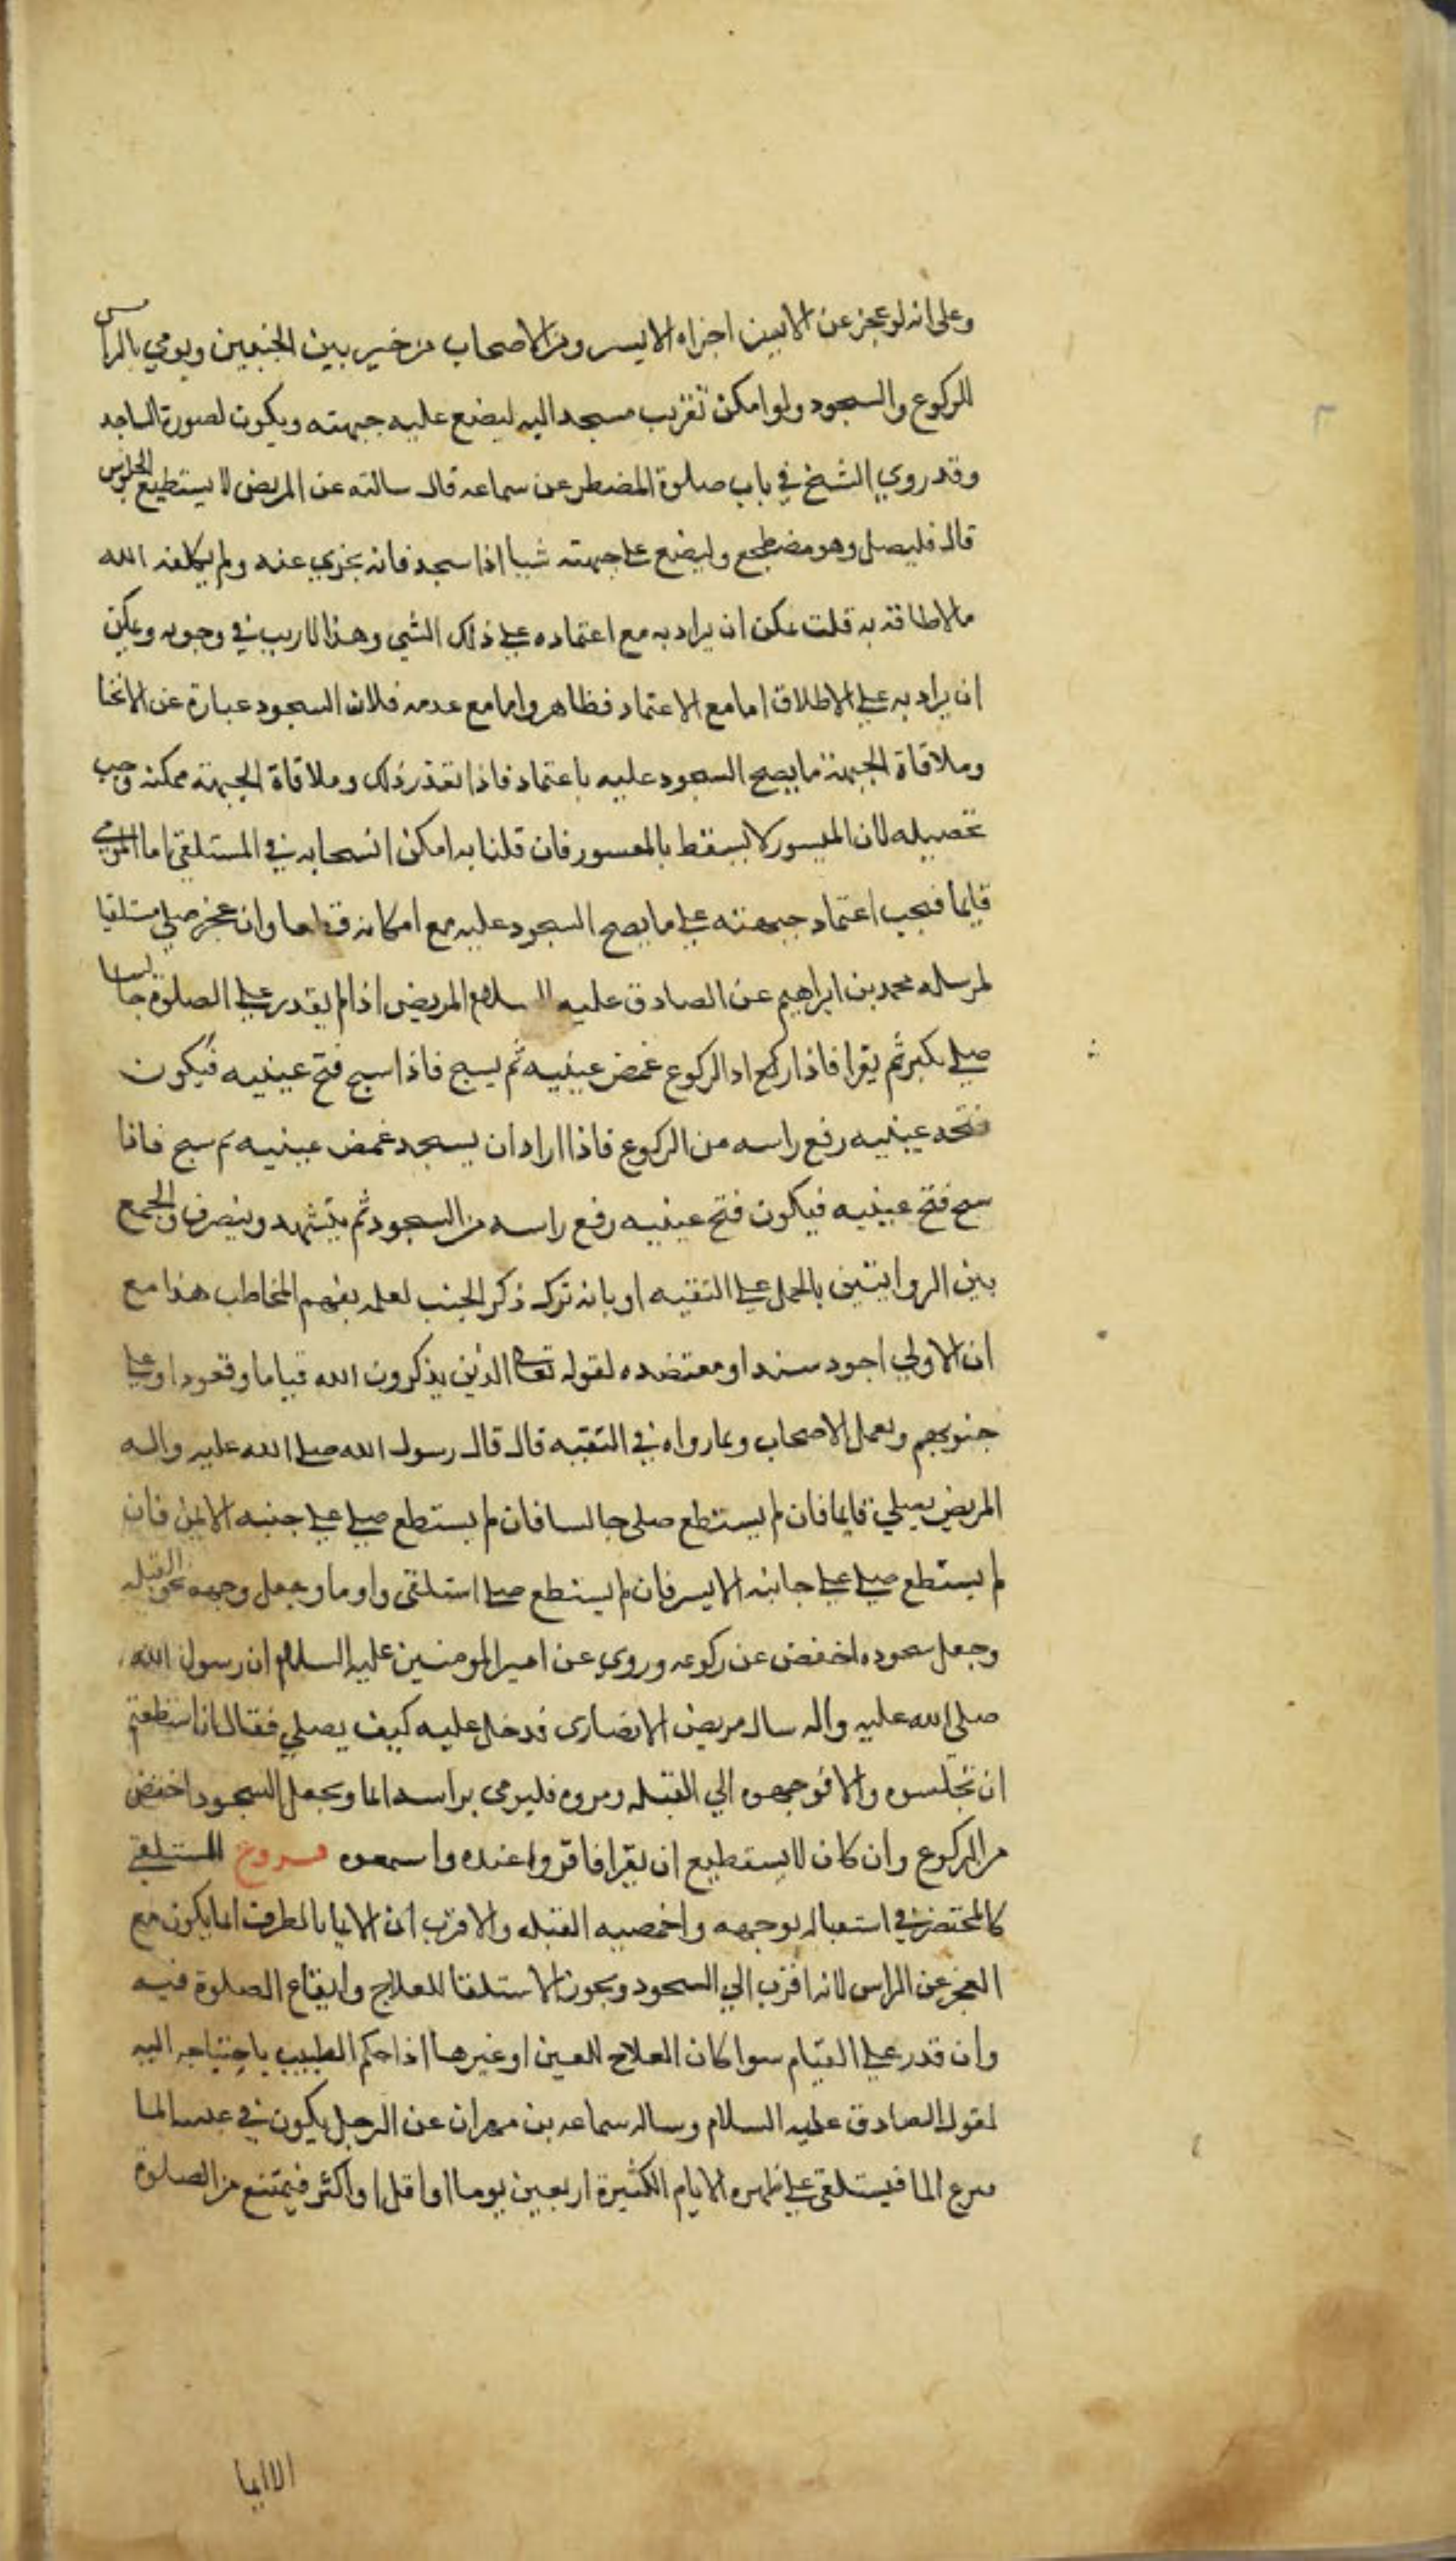 وعلى انه لو عجز عن الايمن اجزاه الايسر ومن الاصحاب من خير بين الجنبين ويومي بالراس
للركوع والسجود ولو امكن تقريب مسجد اليه ليضع عليه جبهته ويكون لصورة الساجد
وقد روي الشيخ في باب صلوة المضطر عن سماعه قال سالته عن المريض لا يستطيع الجلوس
قال فليصل وهو مضطجع وليضع على جبهته شيا اذا سجد فانه يجزي عنه ولم يكلفه الله
مالاطاقة به قلت يمكن ان يراد به مع اعتماده على ذلك الشي وهذا لاريب في وجوبه ويمكن
ان يراد به على الاطلاق امامع الاعتماد فظاهر وامامع عدمه فلان السجود عبارة عن الانحنا
وملاقاة الجبهة ما يصح السجود عليه باعتماد فاذا تعذر ذلك وملاقاة الجبهة ممكنه وجب
تحصيله لان الميسور لا يسقط بالمعسور فان قلنا به امكن انسحابه في المستلقي اما المومي
قايما فيجب اعتماد جبهته على مايصح السجود عليه مع امكانه قطعا وان عجز صلى مستلقيا
لمرسله محمد بن ابراهيم عن الصادق عليه السلام المريض اذا لم يقدر على الصلوة جالسا
صلى يكبر ثم يقرا فاذا اركع اد الركوع غمض عينيه ثم يسبح فاذا سبح فتح عينيه فيكون
فتحه عينيه رفع راسه من الركوع فاذا اراد ان يسجد غمض عينيه ثم سبح فاذا
سبح فتح عينيه فيكون فتح عينيه رفع راسه من السجود ثم يتشهد وينصرف والجمع
بين الروايتين بالحمل على التقيه او بانه ترك ذكر الجنب لعلمه بفهم المخاطب هذا مع
ان الاولي اجود سندا ومعتضده لقوله تعالى الذين يذكرون الله قياما وقعودا وعلى
جنوبهم وبعمل الاصحاب وبما رواه في التقيه قال قال رسول الله صلى الله عليه واله
المريض يصلي قايما فان لم يستطع صلى جالسا فان لم يستطع صلى على جنبه الايمن فان
لم يستطع صلى على جانبه الايسر فان لم يستطع صلى استلقى واوما وجعل وجهه نحو القبله
وجعل سجوده اخفض عن ركوعه وروي عن امير المومنين عليه السلام ان رسول الله
صلى الله عليه واله سال مريض الانصاري فدخل عليه كيف يصلي فقال اذا استطعتم
ان تجلسوه والا فوجهوه الي القبله ومروه فليومى براسه ايما ويجعل السجود اخفض
من الركوع وان كان لا يستطيع ان يقرا فاقروا عنده واسمعوه فروع المستلقي
كالمحتضر في استقباله بوجهه واخمصيه القبله والاقرب ان الايما بالطرف انما يكون مع
العجز عن الراس لانه اقرب الي السجود ويجوز الاستلقا للعلاج وايقاع الصلوة فيه
وان قدر على القيام سوا كان العلاج للعين او غيرها اذا حكم الطبيب باحتياجه اليه
لقول الصادق عليه السلام وساله سماعه بن مهران عن الرجل يكون في عينه الما
فينزع الما فيستلقي على ظهره الايام الكثيرة اربعين يوما او اقل او اكثر فيمتنع من الصلوة
الاايما